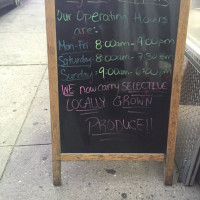 Our Operating Hours
are:
Mon-Fri 8:00am-9:00pm
Saturday 8:00am-7:30pm
Sunday: 9:00am-6:00pm
WE now carry SELECTIVE
LOCALLY GROWN
PRODUCE!!